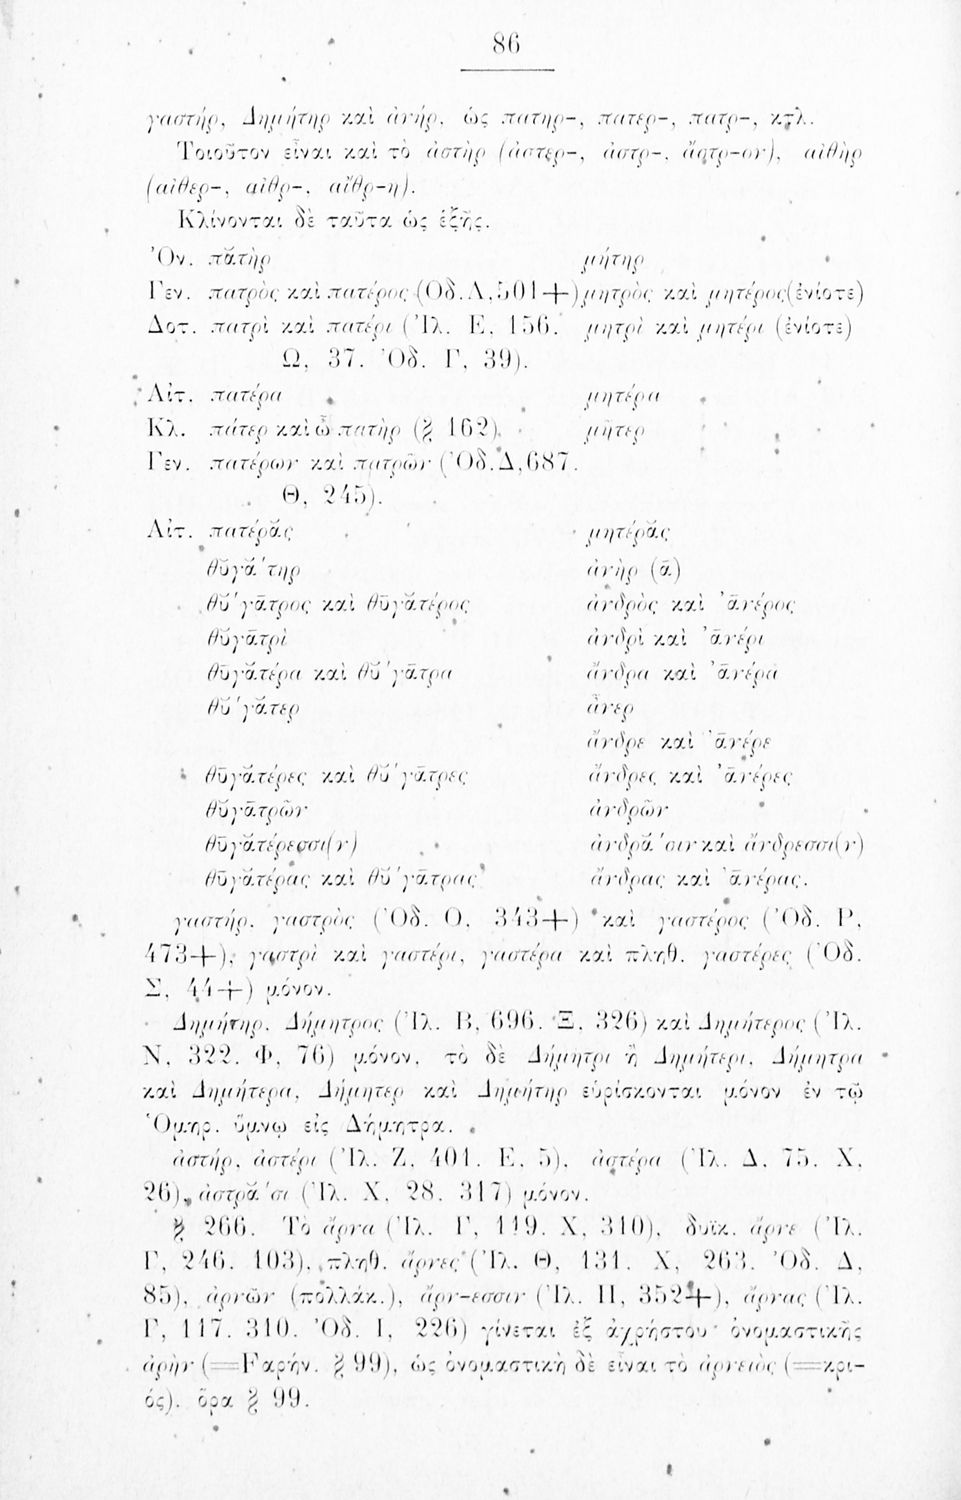 86
γαστήρ, Δημήτηρ καὶ ἀνήρ, ὡς πατηρ-, πατερ-, πατρ-, κτλ.
Τοιοῦτον εἶναι καὶ τὸ ἀστὴρ (ἀστερ-, ἀστρ-, ἄστρ-ον), αἰθὴρ
(αἰθερ-, αἰθρ-, αἴθρ-η).
Κλίνονται δὲ ταῦτα ὡς ἑξῆς.
Ὀν. πᾰτὴρ μήτηρ
Γεν. πατρὸς καὶ πατέρος (Ὀδ. Λ, 501+) μητρὸς καὶ μητέρος (ἐνίοτε)
Δοτ. πατρὶ καὶ πατέρι (Ἰλ. Ε, 156. μητρὶ καὶ μητέρι (ἐνίοτε)
Ω, 37. Ὀδ. Γ, 39).
Αἰτ. πατέρα μητέρα
Κλ. πάτερ καὶ ὦ πατὴρ (§ 162) μῆτερ
Γεν. πατέρων καὶ πατρῶν (Ὀδ. Δ, 687.
Θ, 245).
Αἰτ. πατέρᾰς μητέρᾰς
θῠγᾰ́τηρ ἀνὴρ (ᾰ)
θῠ́γᾱτρος καὶ θῡγᾰτέρος ἀνδρὸς καὶ ᾱ̓νέρος
θῠγᾱτρὶ ἀνδρὶ καὶ ᾱ̓νέρι
θῡγᾰτέρα καὶ θῠ́γᾱτρα ἄνδρα καὶ ᾱ̓νέρα
θῠ́γᾰτερ ἆνερ
ἄνδρε καὶ ᾱ̓νέρε
θῡγᾰτέρες καὶ θῠ́γᾱτρες ἄνδρες καὶ ᾱ̓νέρες
θῠγᾱτρῶν ἀνδρῶν
θῡγᾰτέρεσσι(ν) ἀνδρᾰ́σιν καὶ ἄνδρεσσι(ν)
θῡγᾰτέρας καὶ θῠ́γᾱτρας ἄνδρας καὶ ᾱ̓νέρας.
γαστήρ, γαστρὸς (Ὀδ. Ο, 343+) καὶ γαστέρος (Ὀδ. Ρ,
473+), γαστρὶ καὶ γαστέρι, γαστέρα καὶ πληθ. γαστέρες (Ὀδ.
Σ, 44+) μόνον.
Δημήτηρ, Δήμητρος (Ἰλ. Β, 696. Ξ, 326) καὶ Δημήτερος (Ἰλ.
Ν, 322. Φ, 76) μόνον, τὸ δὲ Δήμητρι ἢ Δημήτερι, Δήμητρα
καὶ Δημήτερα, Δήμητερ καὶ Δημήτηρ εὑρίσκονται μόνον ἐν τῷ
Ὁμηρ. ὕμνῳ εἰς Δήμητρα.
ἀστήρ, ἀστέρι (Ἰλ. Ζ, 401. Ε, 5), ἀστέρα (Ἰλ. Δ, 75. Χ,
26), ἀστρᾰ́σι (Ἰλ. Χ, 28. 317) μόνον.
§ 266. Τὸ ἄρνα (Ἰλ. Γ, 119. Χ, 310), δυϊκ. ἄρνε (Ἰλ.
Γ, 246. 103), πληθ. ἄρνες (Ἰλ. Θ, 131. Χ, 263. Ὀδ. Δ,
85), ἀρνῶν (πολλάκ.), ἄρν-εσσιν (Ἰλ. Π, 352+), ἄρνας (Ἰλ.
Γ, 117. 310. Ὀδ. Ι, 226) γίνεται ἐξ ἀχρήστου ὀνομαστικῆς
ἀρὴν (=Fαρήν. § 99), ὡς ὀνομαστικὴ δὲ εἶναι τὸ ἀρνειὸς (=κρι-
ός). ὅρα § 99.